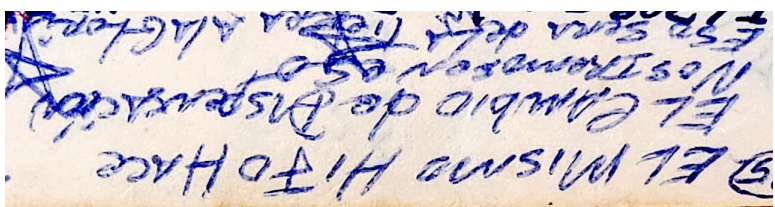 5 EL MISMO HIJO HACE
EL CAMBIO de Dispensación
eso
ESO SERA de LA Tierra A LA Gloria